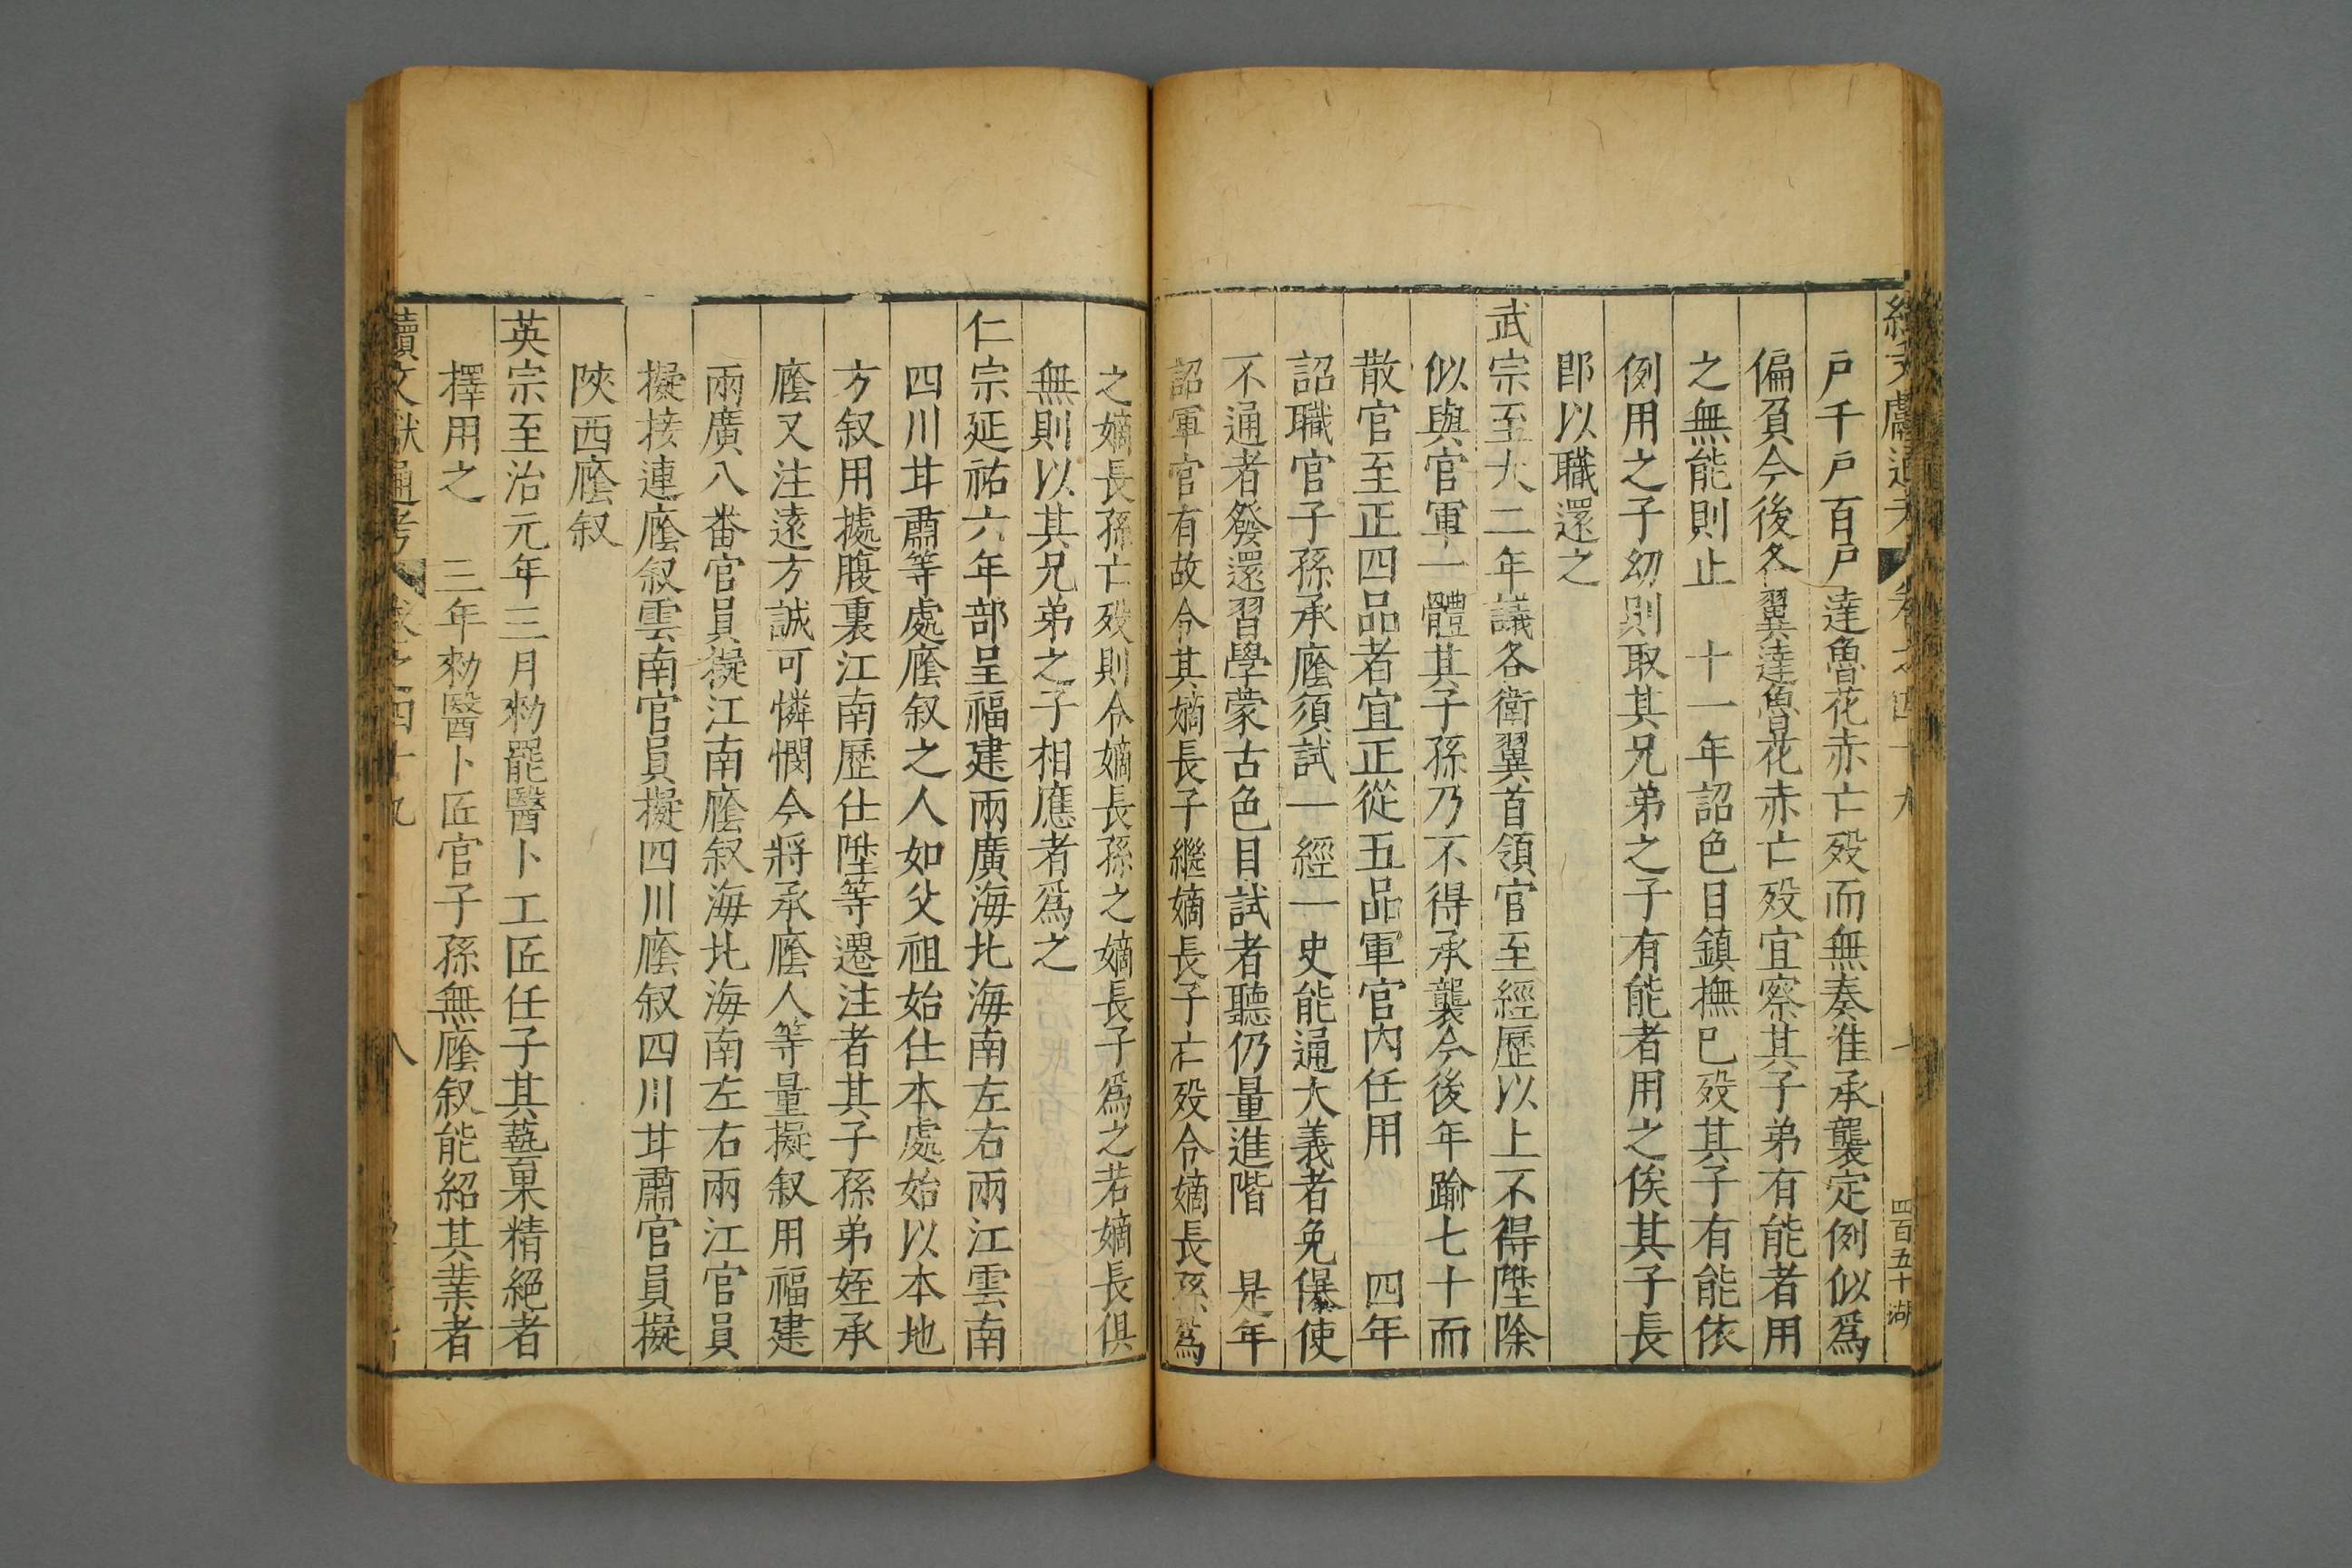 戸千戸百戸達魯花赤亡殁而無奏准承襲定例似爲
偏負今後各翼達魯花赤亡殁宜察其子弟有能者用
之無能則止　十一年詔色目鎮撫巳殁其子有能依
例用之子幼則取其兄弟之子有能者用之俟其子長
郎以職還之
武宗至大二年議各衛翼首領官至經歷以上不得陞除
似與官軍一體其子孫乃不得承襲今後年踰七十而
散官至正四品者宜正從五品軍官内任用　　四年
詔職官子孫承廕須試一經一史能通大義者免儤使
不通者發還習學蒙古色目試者聽仍量進階　是年
詔軍官有故令其嫡長子繼嫡長子亡殁令嫡長孫爲
之嫡長孫亡殁則令嫡長孫之嫡長子爲之若嫡長俱
無則以其兄弟之子相應者爲之
仁宗延祐六年部呈福建兩廣海北海南左右兩江雲南
四川甘肅等處廕叙之人如父祖始仕本處始以本地
方叙用據腹裏江南歷仕陞等遷注者其子孫弟姪承
廕又注遠方誠可憐憫今將承廕人等量擬叙用福建
兩廣八番官員擬江南廕叙海北海南左右兩江官員
擬接連廕叙雲南官員擬四川廕叙四川甘肅官員擬
陜西廕叙
英宗至治元年三月勑罷醫卜工匠任子其藝果精絕者
擇用之　三年勑醫卜匠官子孫無廕叙能紹其業者
續文獻通考　卷之四十九　八